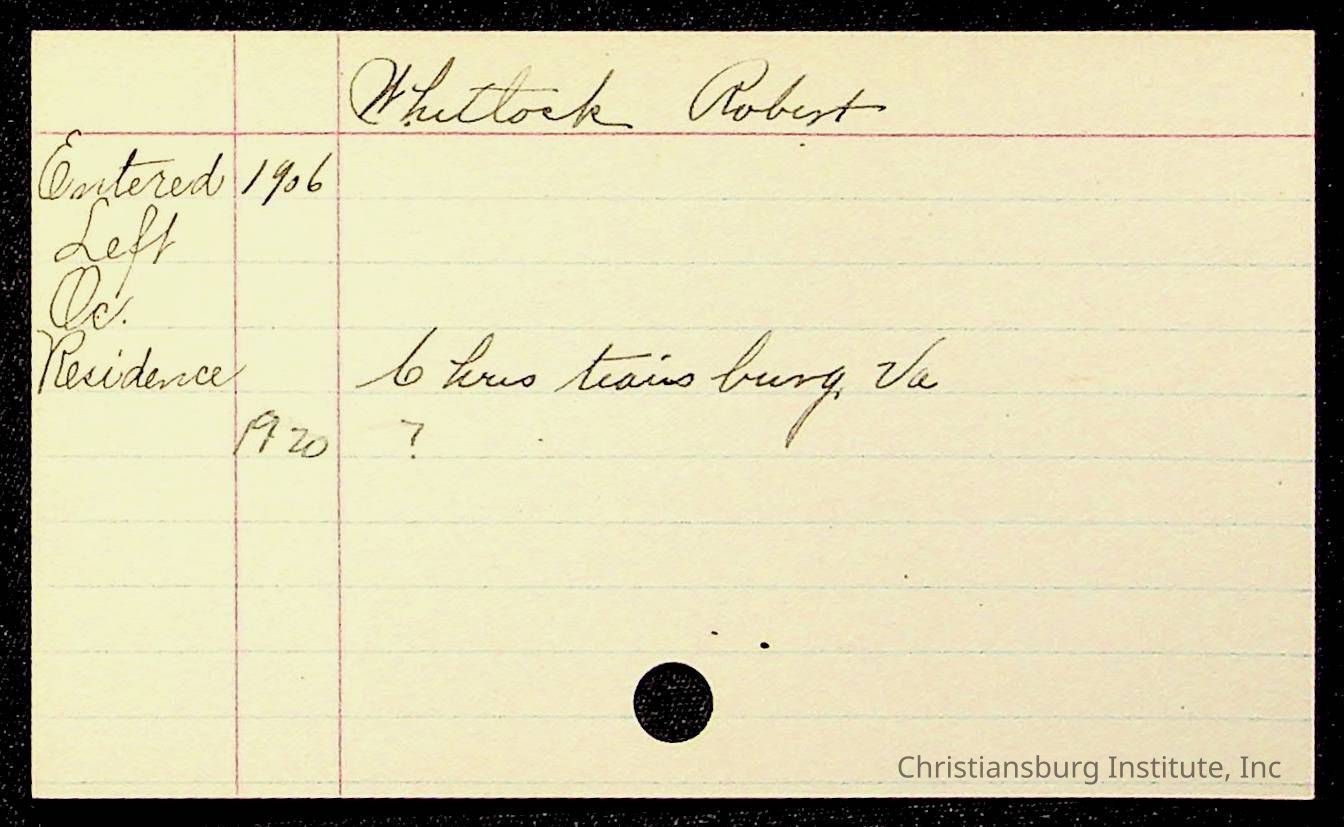 Whitlock Robert
Entered 1906
Left
Oc.
Residence Christiansburg, Va
1920 ?
Christiansburg Institute, Inc